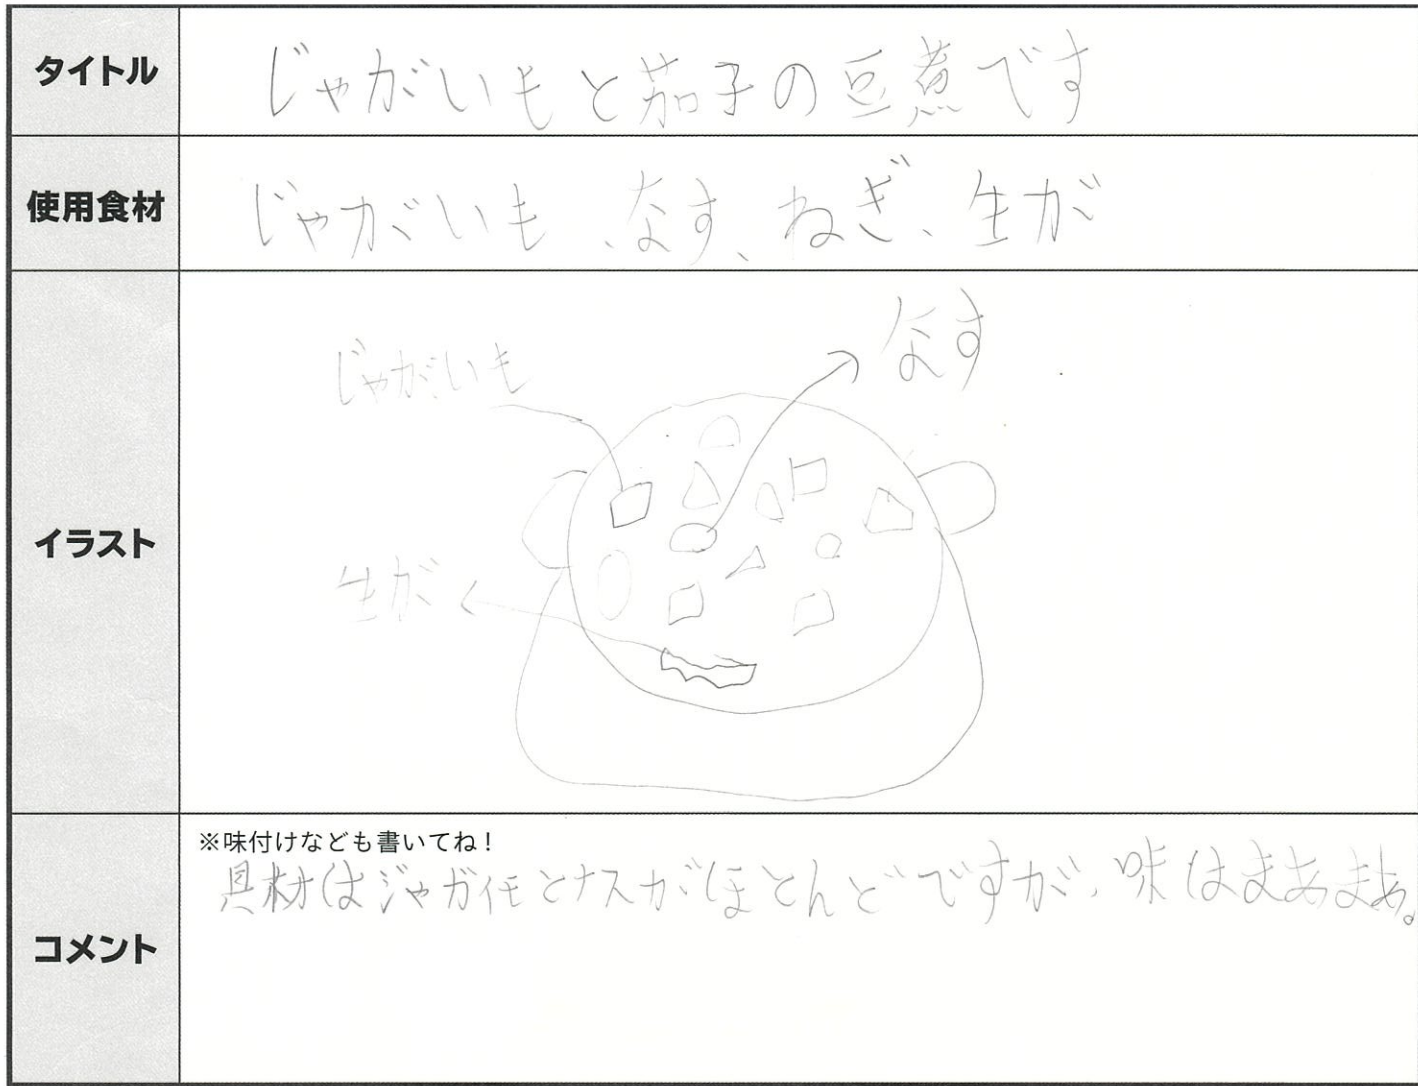 タイトル
じゃがいもと茄子の豆煮です
使用食材
じゃがいも、なす、ねぎ、生が
イラスト
じゃがいも
なす
生が
コメント
※味付けなども書いてね！
具材はジャガイモとナスがほとんどですが、味はまあまあ。